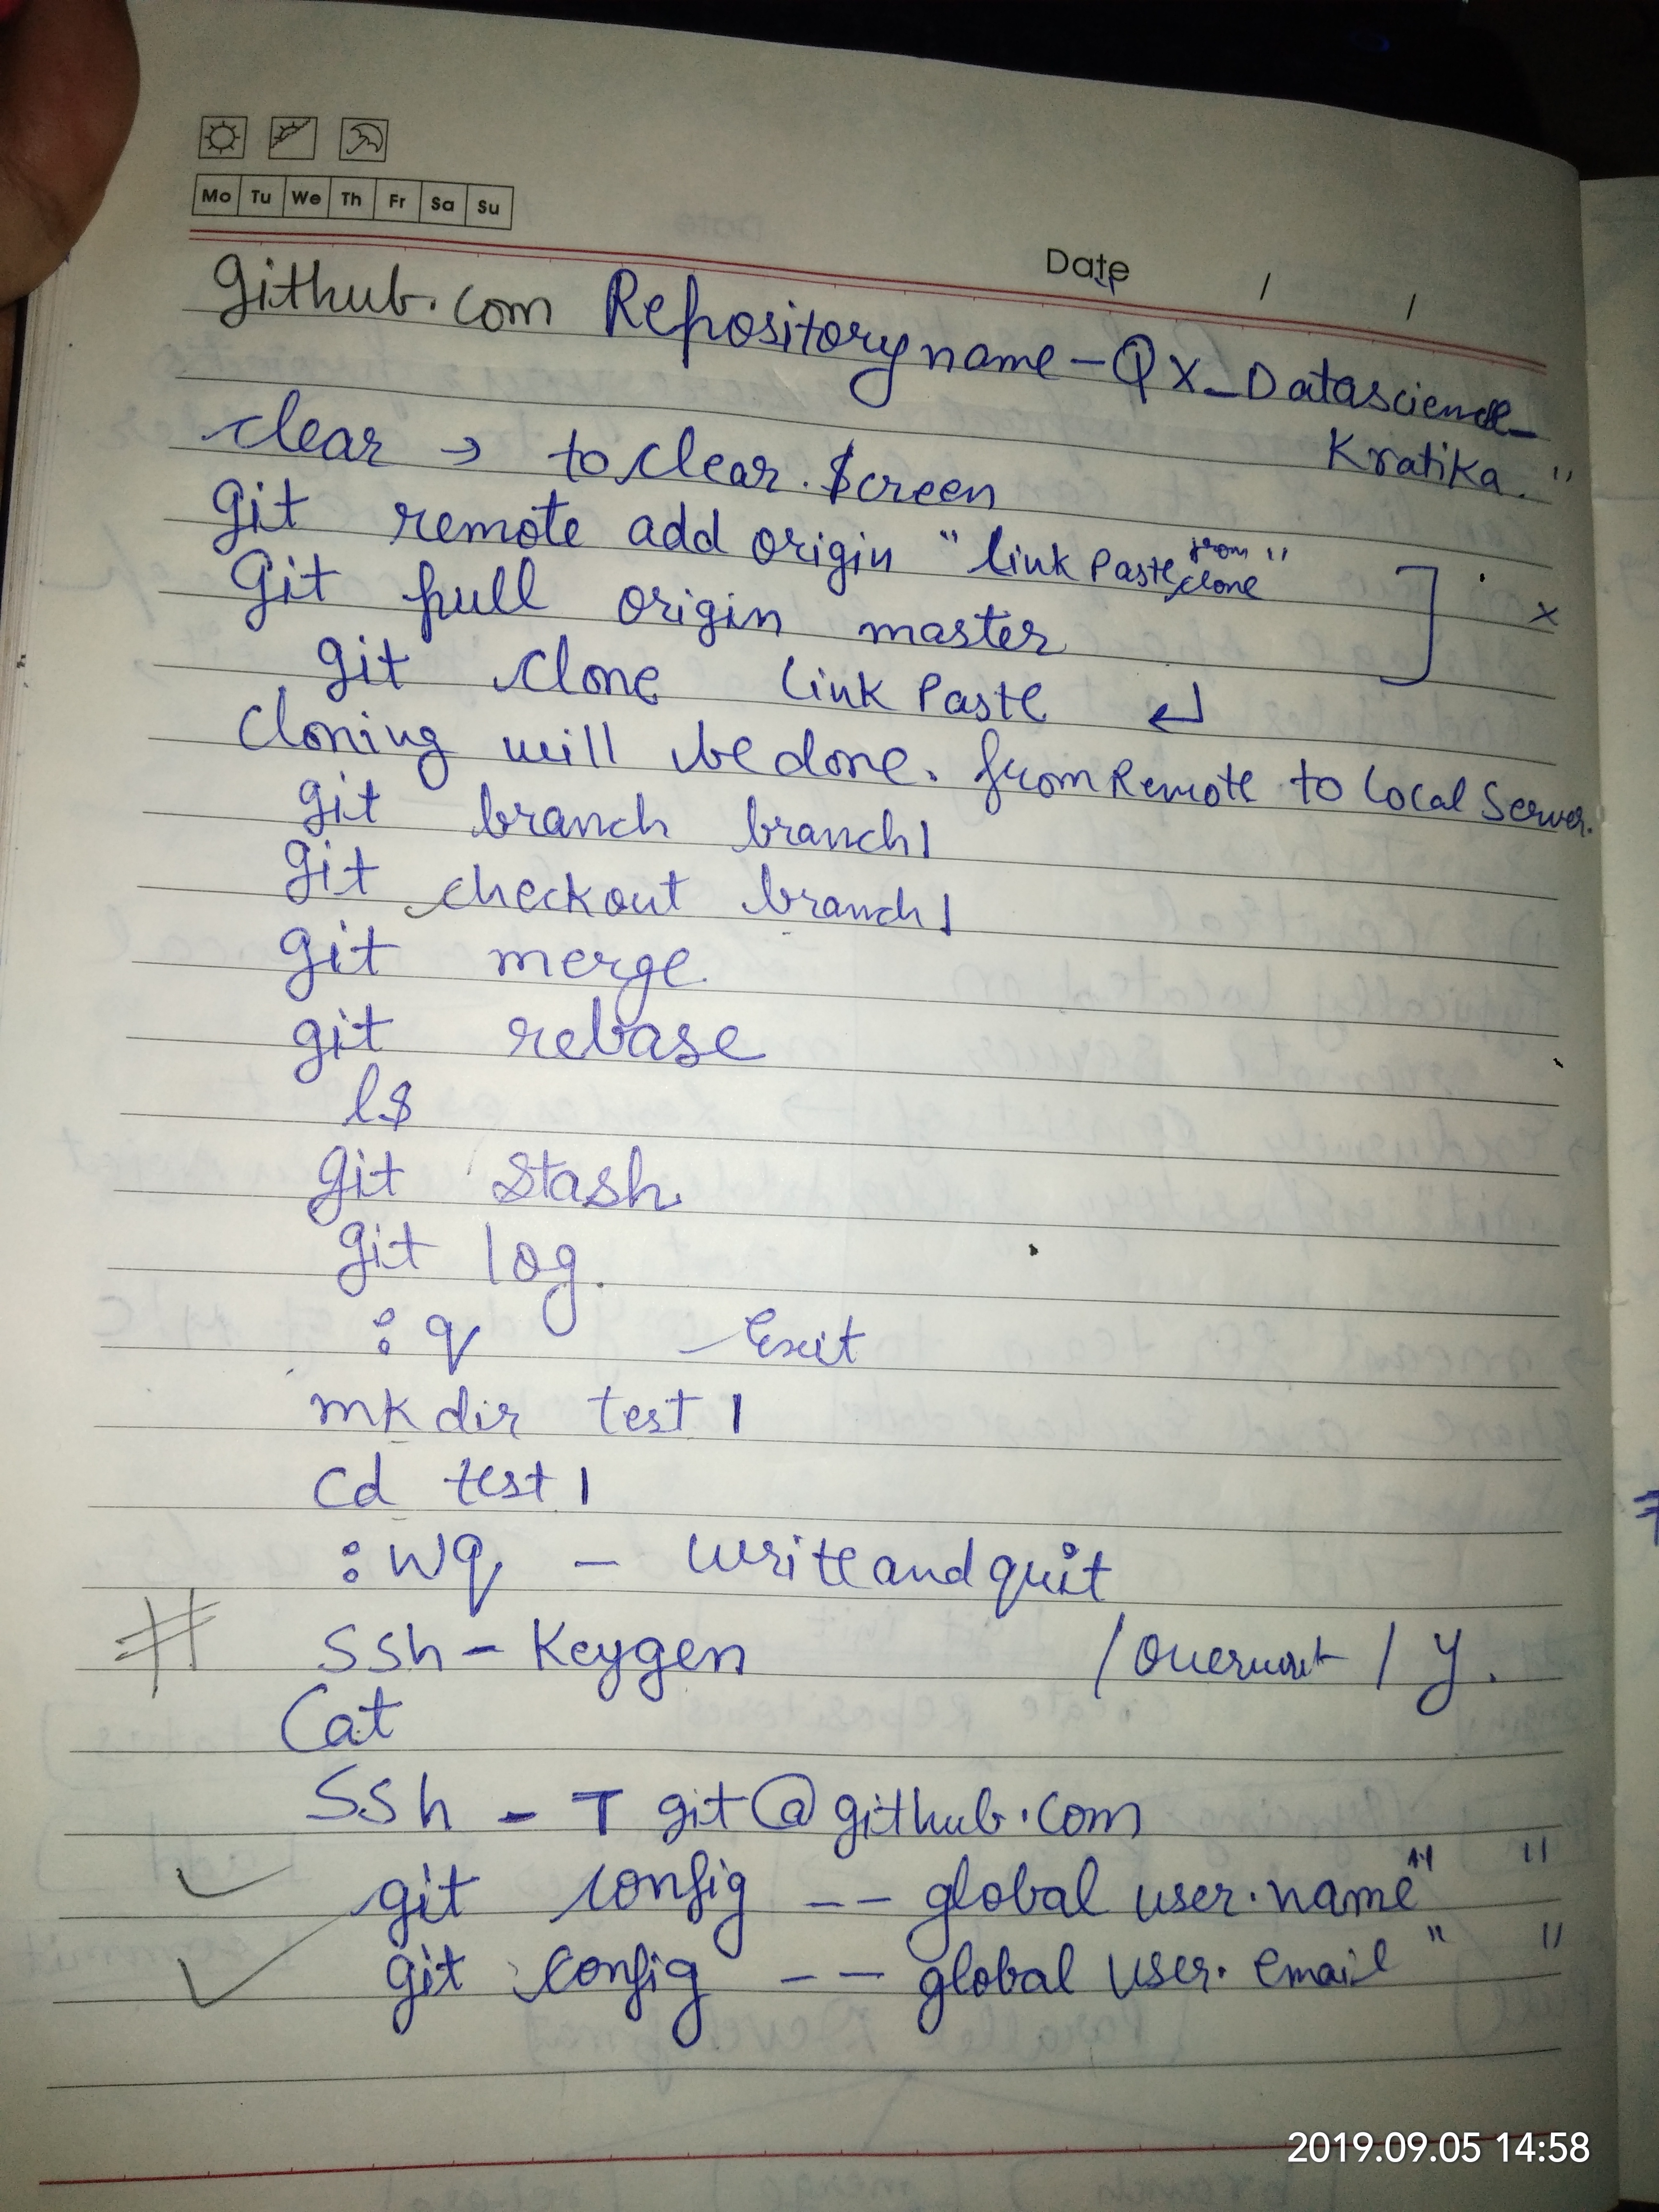 Mo Tu We Th Fr Sa Su
Date / /
github.com Repository name - QX_Datascience_
Kratika. "
clear → to clear. Screen
git remote add origin "link Paste from clone"
Git pull origin master ] x
git clone link Paste ↵
Cloning will be done. from Remote to local Server.
git branch branch1
git checkout branch1
git merge
git rebase
ls
git stash
git log.
:q - Exit
mkdir test 1
cd test 1
:wq - write and quit
# ssh-keygen / / y.
Cat
ssh -T git@github.com
git config -- global user.name " "
git config -- global user.email " "
2019.09.05 14:58